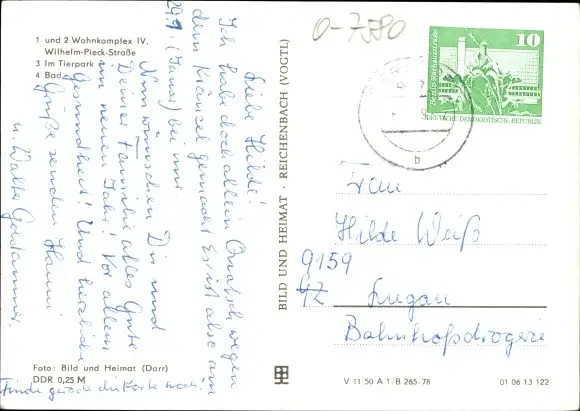 1 und 2 Wohnkomplex IV,
Wilhelm-Pieck-Straße
3 Im Tierpark
4 Bad
Liebe Hilde!
Ich habe doch allein Quatsch wegen
dem Kränzel gemacht. Es ist also am
29.9. (Janz) bei mir.
Nun wünschen Dir und
Deiner Familie alles Gute
im neuen Jahr! Vor allem
Gesundheit! Und herzliche
Grüße senden Hanni
u. Walter
Finde gerade die Karte noch!
Foto: Bild und Heimat (Darr)
DDR 0,25 M
BILD UND HEIMAT · REICHENBACH (VOGTL)
0-7580
10
DEUTSCHE DEMOKRATISCHE REPUBLIK
b
Frau
Hilde Weiß
9159
Lugau
Bahnhofsdrogerie
V 11 50 A 1/B 265/78
01 06 13 122